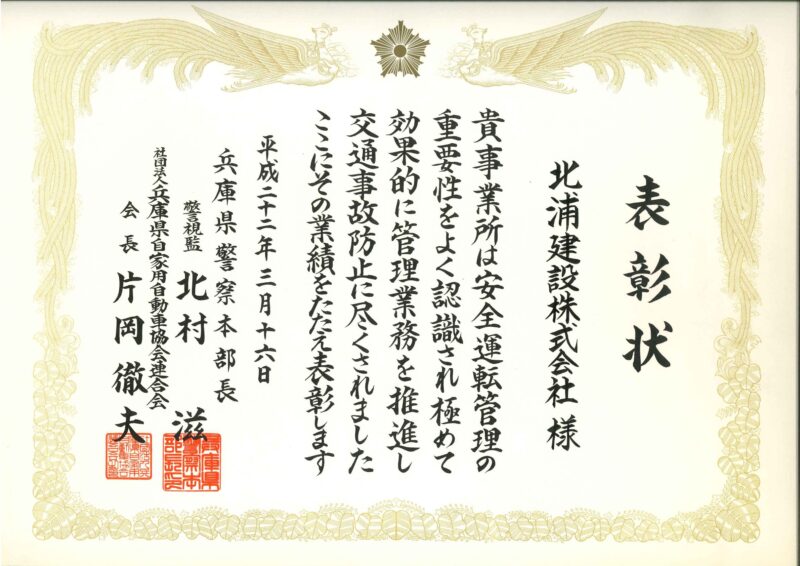 表彰状
北浦建設株式会社 様
貴事業所は安全運転管理の
重要性をよく認識され極めて
効果的に管理業務を推進し
交通事故防止に尽くされました
ここにその業績をたたえ表彰します
平成二十二年三月十六日
兵庫県警察本部長
警視監 北村 滋
社団法人兵庫県自家用自動車協会連合会
会長 片岡徹夫
兵庫県警察本部長之印